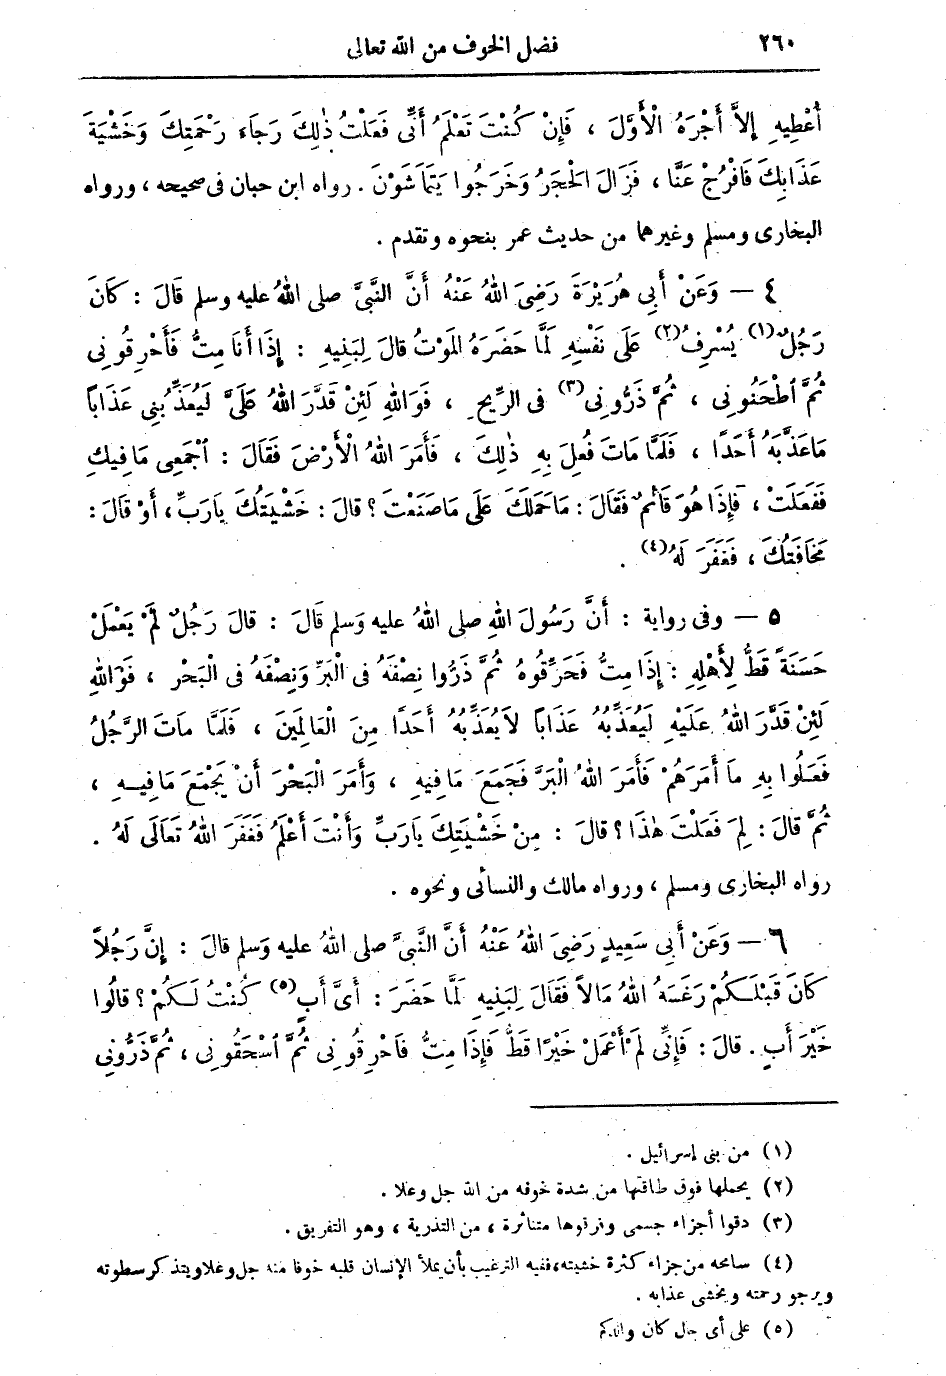 ٢٦٠ فضل الخوف من الله تعالى
أُعْطِيهِ إِلاَّ أَجْرَهُ الْأَوَّلَ ، فَإِنْ كُنْتَ تَعْلَمُ أَنِّى فَعَلْتُ ذٰلِكَ رَجَاءَ رَحْمَتِكَ وَخَشْيَةَ
عَذَابِكَ فَافْرُجْ عَنَّا ، فَزَالَ الحَجَرُ وَخَرَجُوا يَتَمَاشَوْنَ . رواه ابن حبان فى صحيحه ، ورواه
البخارى ومسلم وغيرهما من حديث عمر بنحوه وتقدم .
٤ — وَعَنْ أَبِى هُرَيْرَةَ رَضِىَ اللهُ عَنْهُ أَنَّ النَّبِىَّ صلى اللهُ عليه وسلم قَالَ : كَانَ
رَجُلٌ (١) يُسْرِفُ (٢) عَلَى نَفْسِهِ لَمَّا حَضَرَهُ المَوْتُ قالَ لِبَنِيهِ : إِذَا أَنَا مِتُّ فَأَحْرِقُونِى
ثُمَّ ٱطْحَنُونِى ، ثُمَّ ذَرُّونِى (٣) فى الرِّيحِ ، فَوَاللهِ لَئِنْ قَدَّرَ اللهُ عَلَىَّ لَيُعَذِّبُنِى عَذَاباً
مَاعَذَّبَهُ أَحَدًا ، فَلَمَّا مَاتَ فُعِلَ بِهِ ذٰلِكَ ، فَأَمَرَ اللهُ الْأَرْضَ فَقَالَ : ٱجْمَعِى مَا فِيكِ
فَفَعَلَتْ ، فَإِذَا هُوَ قَائمٌ فَقَالَ : مَاحَمَلَكَ عَلَى مَاصَنَعْتَ ؟ قالَ : خَشْيَتُكَ يَارَبِّ ، أَوْ قَالَ :
مَخَافَتُكَ ، فَغَفَرَ لَهُ (٤) .
٥ — وفى رواية : أَنَّ رَسُولَ اللهِ صلى اللهُ عليه وَسلم قَالَ : قالَ رَجُلٌ لَمْ يَعْمَلْ
حَسَنَةً قَطُّ لِأَهْلِهِ : إِذَا مِتُّ فَحَرِّقُوهُ ثُمَّ ذَرُّوا نِصْفَهُ فى الْبَرِّ وَنِصْفَهُ فى الْبَحْرِ ، فَوَاللهِ
لَئِنْ قَدَّرَ اللهُ عَلَيْهِ لَيُعَذِّبَهُ عَذَاباً لاَيُعَذِّبُهُ أَحَدًا مِنَ الْعَالَمِينَ ، فَلَمَّا مَاتَ الرَّجُلُ
فَعَلُوا بِهِ مَا أَمَرَهُمْ فَأَمَرَ اللهُ الْبَرَّ فَجَمَعَ مَا فِيهِ ، وَأَمَرَ الْبَحْرَ أَنْ يَجْمَعَ مَا فِيهِ ،
ثُمَّ قالَ : لِمَ فَعَلْتَ هٰذَا ؟ قالَ : مِنْ خَشْيَتِكَ يَارَبِّ وَأَنْتَ أَعْلَمُ فَغَفَرَ اللهُ تَعَالَى لَهُ .
رواه البخارى ومسلم ، ورواه مالك والنسائى ونحوه .
٦ — وَعَنْ أَبِى سَعِيدٍ رَضِىَ اللهُ عَنْهُ أَنَّ النَّبِىَّ صلى اللهُ عليه وَسلم قالَ : إِنَّ رَجُلاً
كَانَ قَبْلَكُمْ رَغَسَهُ اللهُ مَالاً فَقَالَ لِبَنِيهِ لَمَّا حَضَرَ : أَىَّ أَبٍ (٥) كُنْتُ لَكُمْ ؟ قالُوا
خَيْرَ أَبٍ . قالَ : فَإِنِّى لَمْ أَعْمَلْ خَيْرًا قَطُّ فَإِذَا مِتُّ فَاحْرِقُونِى ثُمَّ ٱسْحَقُونِى ، ثُمَّ ذَرُّونِى
(١) من بنى إسرائيل .
(٢) يحملها فوق طاقتها من شدة خوفه من الله جل وعلا .
(٣) دقوا أجزاء جسمى وفرقوها متناثرة ، من التذرية ، وهو التفريق .
(٤) سامحه من جزاء كثرة خشيته، ففيه الترغيب بأن يملأ الإنسان قلبه خوفا منه جل وعلا ويتذكر سطوته
ويرجو رحمته ويخشى عذابه .
(٥) على أى حال كان والدكم